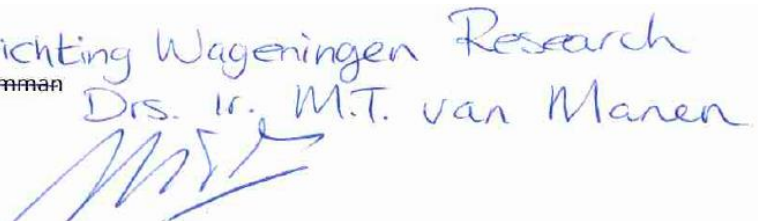 ichting Wageningen Research
mman
Drs. Ir. M.T. van Manen